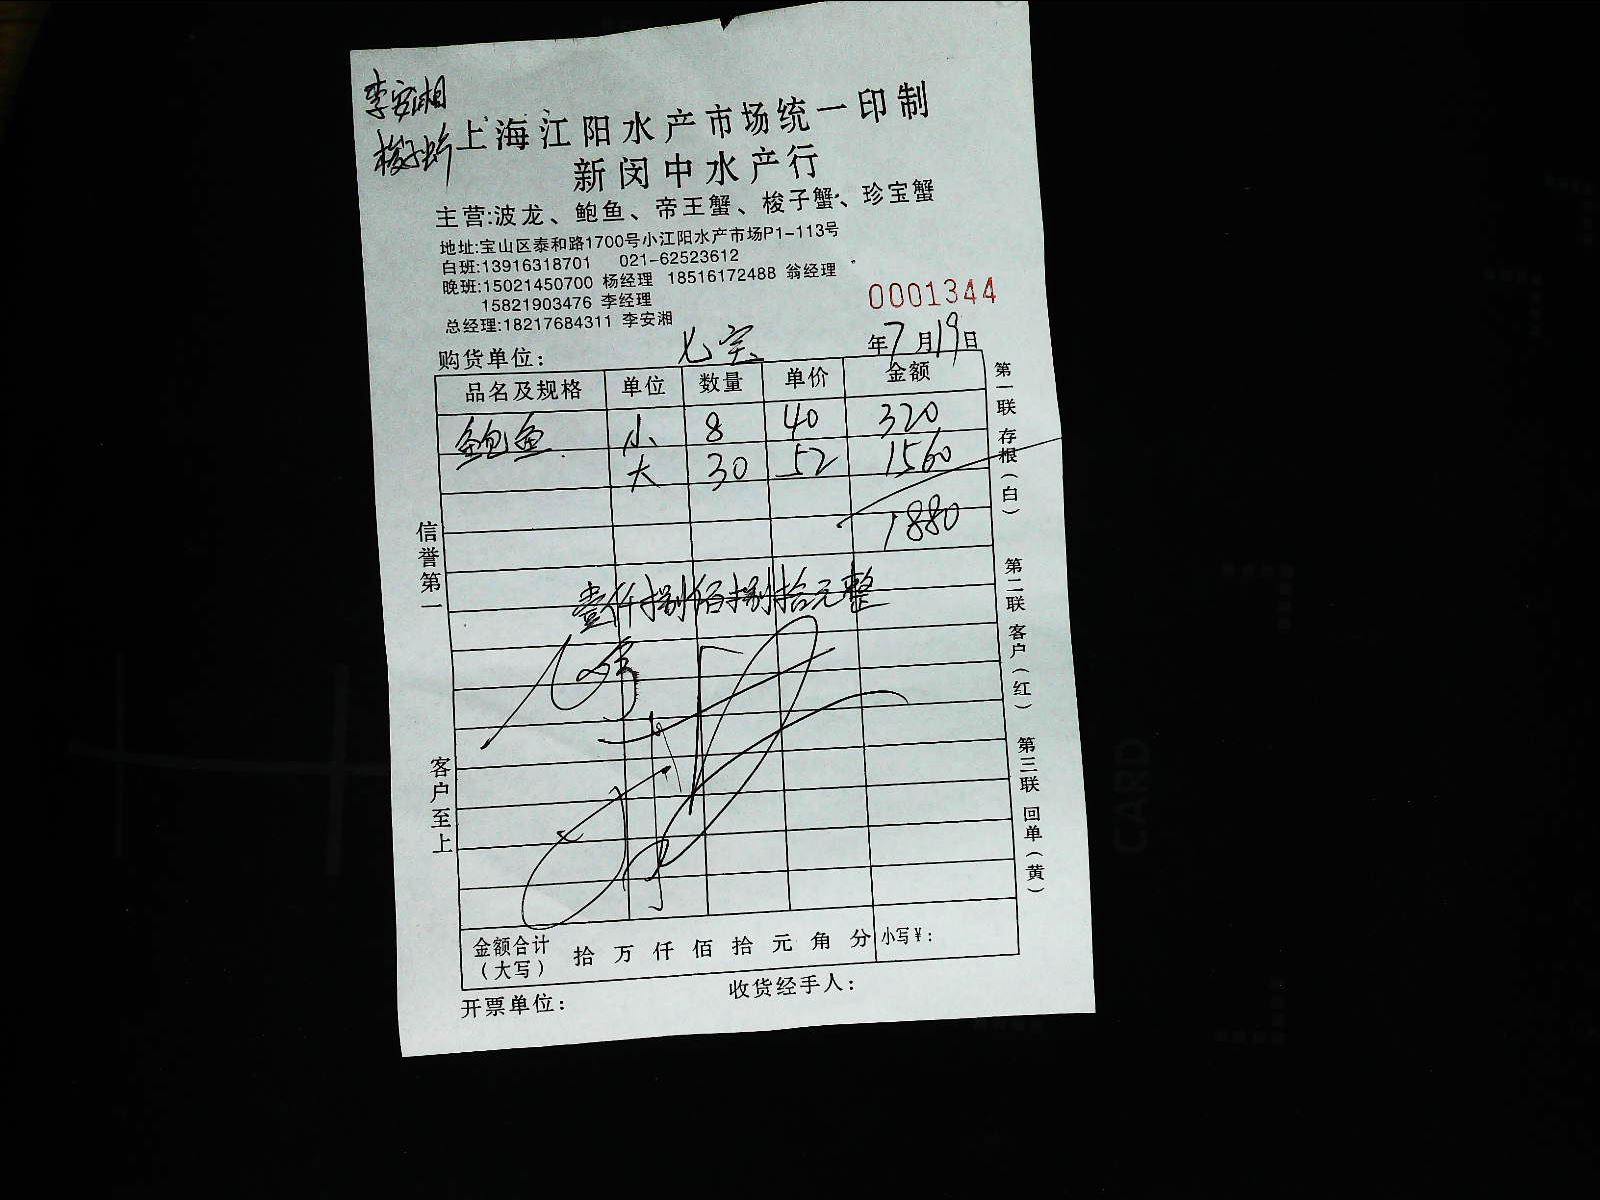 李安湘
梭子蟹
上海江阳水产市场统一印制
新闵中水产行
主营:波龙、鲍鱼、帝王蟹、梭子蟹、珍宝蟹
地址:宝山区泰和路1700号小江阳水产市场P1-113号
白班:13916318701 021-62523612
晚班:15021450700 杨经理 18516172488 翁经理
15821903476 李经理
总经理:18217684311 李安湘
0001344
购货单位: 七宝 年7月19日
品名及规格 单位 数量 单价 金额
鲍鱼 小 8 40 320
大 30 52 1560
1880
壹仟捌佰捌拾元整
金额合计(大写) 拾 万 仟 佰 拾 元 角 分 小写¥:
开票单位: 收货经手人:
信誉第一
客户至上
第一联 存根(白)
第二联 客户(红)
第三联 回单(黄)
CARD